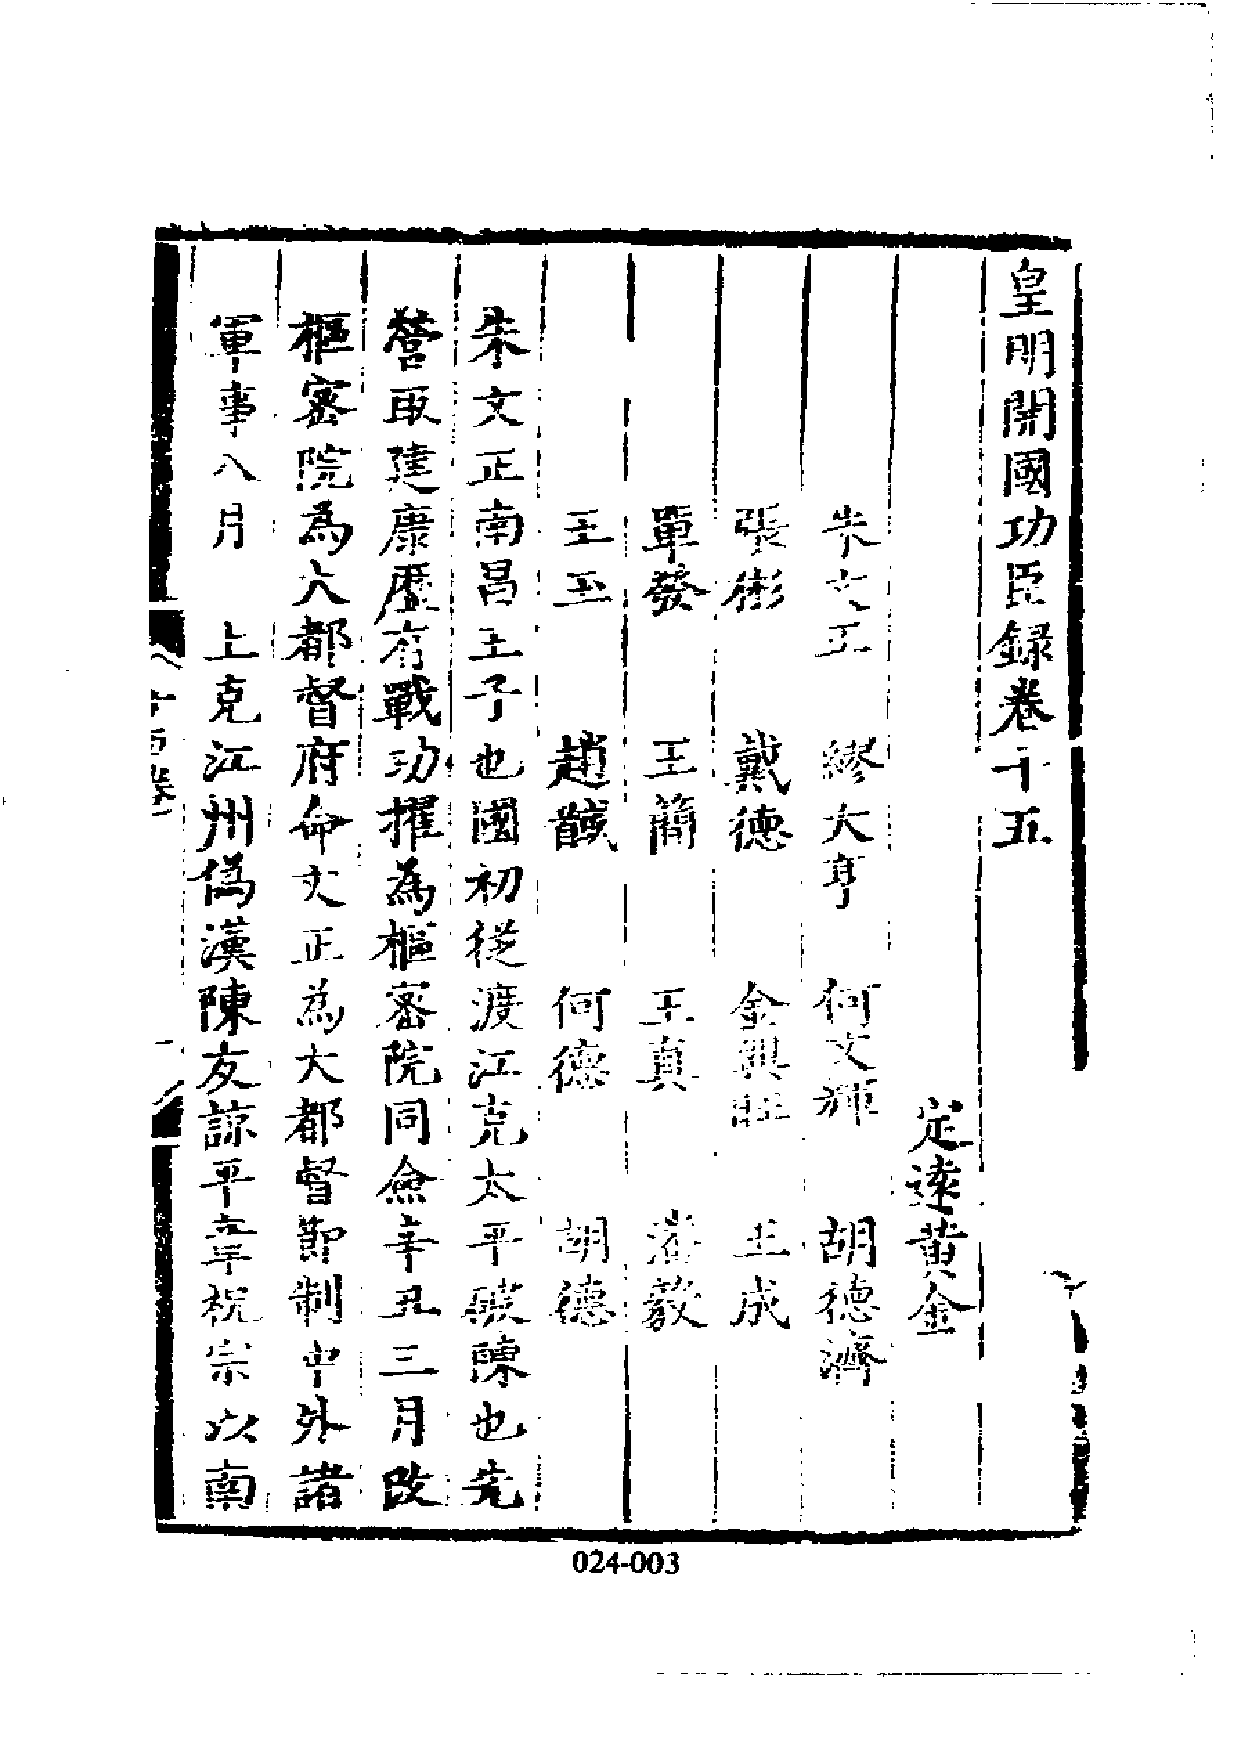 皇明開國功臣録卷十五
定逺黄金
朱文正 繆大亨 何文輝 胡德濟
張彬 戴德 金興旺 王成
單發 王簡 王真 潘毅
王玉 趙馘 何德 胡德
朱文正南昌王子也國初從渡江克太平破陳也先
營取建康歷有戰功擢為樞密院同僉辛丑三月改
樞密院為大都督府命文正為大都督節制中外諸
軍事八月 上克江州偽漢陳友諒平章祝宗以南
024-003